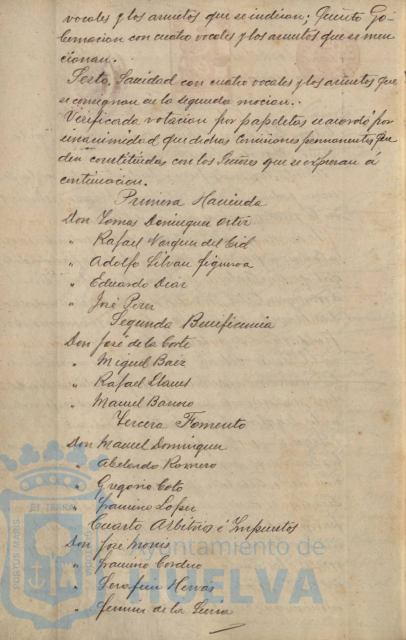 vocales y los asuntos que se indican; Quinto Go-
bernacion con cuatro vocales y los asuntos que se men-
cionan.
Sexto. Sanidad con cuatro vocales y los asuntos que
se consignan en la segunda mocion.
Verificada votacion por papeletas se acordó por
unanimidad que dichas Comisiones permanentes que-
den constituidas con los Señores que se expresan á
continuacion.
Primera Hacienda
Don Tomas Dominguez Ortiz
" Rafael Vazquez del Cid
" Adolfo Silvan Figueroa
" Eduardo Diaz
" José Perez
Segunda Beneficencia
Don José de la Corte
" Miguel Baez
" Rafael Llanes
" Manuel Barroso
Tercera Fomento
Don Manuel Dominguez
" Abelardo Romero
" Gregorio Coto
" Francisco Lopez
Cuarto Arbitrios é Impuestos
Don José Mora
" Francisco Cordero
" Serafin Hervas
" de la Sierra
PORTUS MARIS
ET TERRA
Ayuntamiento de
HUELVA